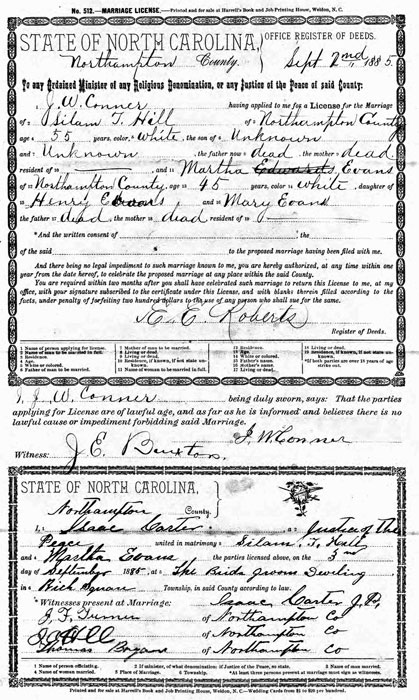 No. 512.—MARRIAGE LICENSE.—Printed and for sale at Harrell's Book and Job Printing House, Weldon, N. C.
STATE OF NORTH CAROLINA, OFFICE REGISTER OF DEEDS.
Northampton County. Sept 2nd, 1885.
To any Ordained Minister of any Religious Denomination, or any Justice of the Peace of said County:
J. W. Conner having applied to me for a License for the Marriage
of Silam T. Hill of Northampton County
age 55 years, color White, the son of Unknown
and Unknown, the father now dead, the mother dead
resident of and Martha Edwards Evans
of Northampton County, age 45 years, color White, daughter of
Henry Evans and Mary Evans
the father dead, the mother dead resident of
And the written consent of the
of the said to the proposed marriage having been filed with me.
And there being no legal impediment to such marriage known to me, you are hereby authorized, at any time within one
year from the date hereof, to celebrate the proposed marriage at any place within the said County.
You are required within two months after you shall have celebrated such marriage to return this License to me, at my
office, with your signature subscribed to the certificate under this License, and with blanks therein filled according to the
facts, under penalty of forfeiting two hundred dollars to the use of any person who shall sue for the same.
E. E. Roberts
Register of Deeds.
1 Name of person applying for license.
2 Name of man to be married in full.
3 Residence.
4 Age.
5 White or colored.
6 Father of man to be married.
7 Mother of man to be married.
8 Living or dead.
9 Living or dead.
10 Residence, if known, if not state unknown.
11 Name of woman to be married in full.
12 Residence.
13 Age.
14 White or colored.
15 Father.
16 Mother.
17 Living or dead.
18 Living or dead.
19 Residence, if known, if not state unknown.
*If both parties are over 18 years of age strike out.
I, J. W. Conner being duly sworn, says: That the parties
applying for License are of lawful age, and as far as he is informed and believes there is no
lawful cause or impediment forbidding said Marriage.
J. W. Conner
Witness: J. E. Buxton.
STATE OF NORTH CAROLINA,
Northampton County.
I, Isaac Carter a Justice of the
Peace united in matrimony Silam. T. Hill
and Martha Evans the parties licensed above, on the 3rd
day of September 1885, at The Birds Grooms Dweling
in Rich Square Township, in said County according to law.
Isaac Carter J. P.
Witnesses present at Marriage:
J. F. Turner of Northampton Co
Hill of Northampton Co
Thomas of Northampton Co
1 Name of person officiating. 2 If minister, of what denomination: if Justice of the Peace, so state. 3 Name of man married.
4 Name of woman married. 5 Place of Marriage. 6 Township. *At least three persons present at marriage must sign as witnesses.
Printed and for sale at Harrell's Book and Job Printing House, Weldon, N. C.—Wedding Cards from $5 to $20 per hundred.